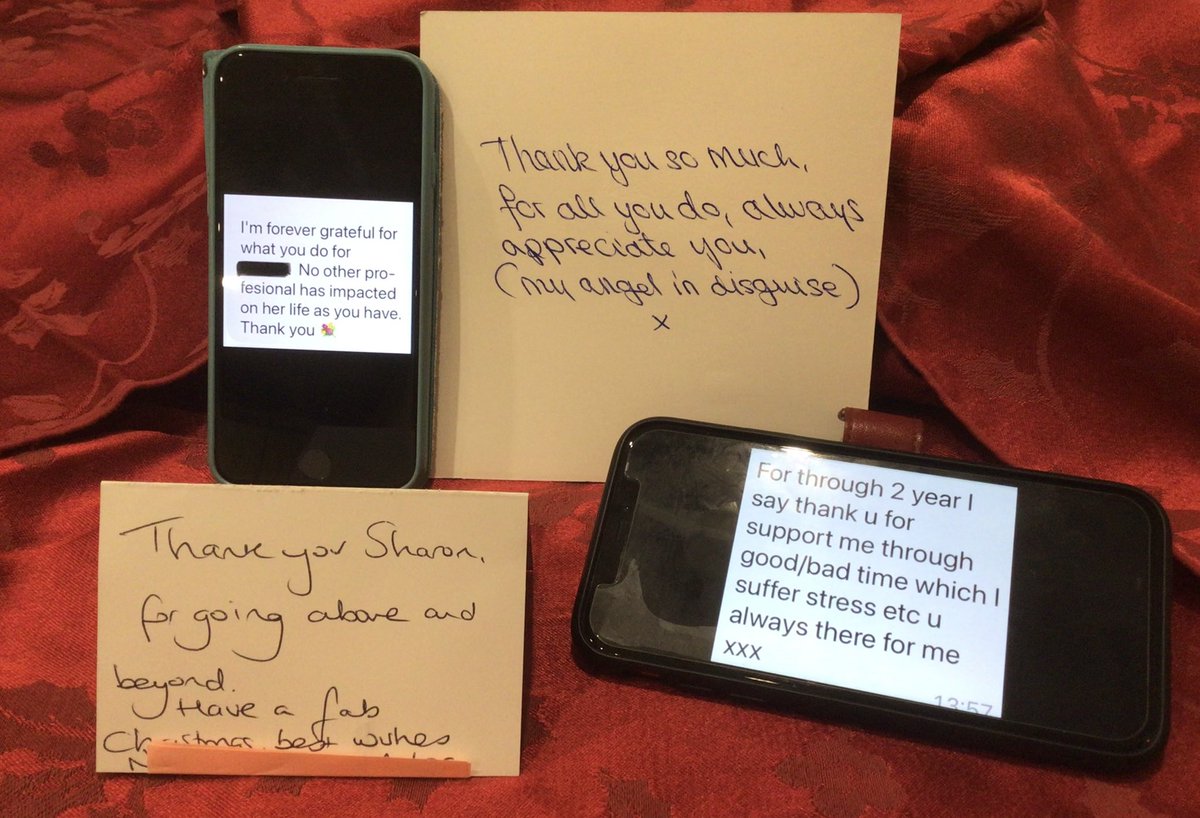 I'm forever grateful for
what you do for
No other pro-
fesional has impacted
on her life as you have.
Thank you 💐
Thank you so much,
for all you do, always
appreciate you,
(my angel in disguise)
x
Thank you Sharon,
for going above and
beyond.
Have a fab
Christmas, best wishes
For through 2 year I
say thank u for
support me through
good/bad time which I
suffer stress etc u
always there for me
xxx
13:57